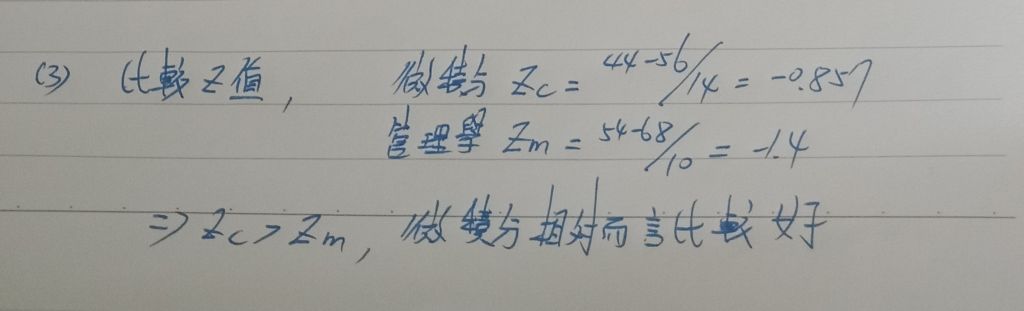 (3) 比較 Z 值, 微積分 Zc = 44-56/14 = -0.857
管理學 Zm = 54-68/10 = -1.4
⇒ Zc > Zm, 微積分相對而言比較好